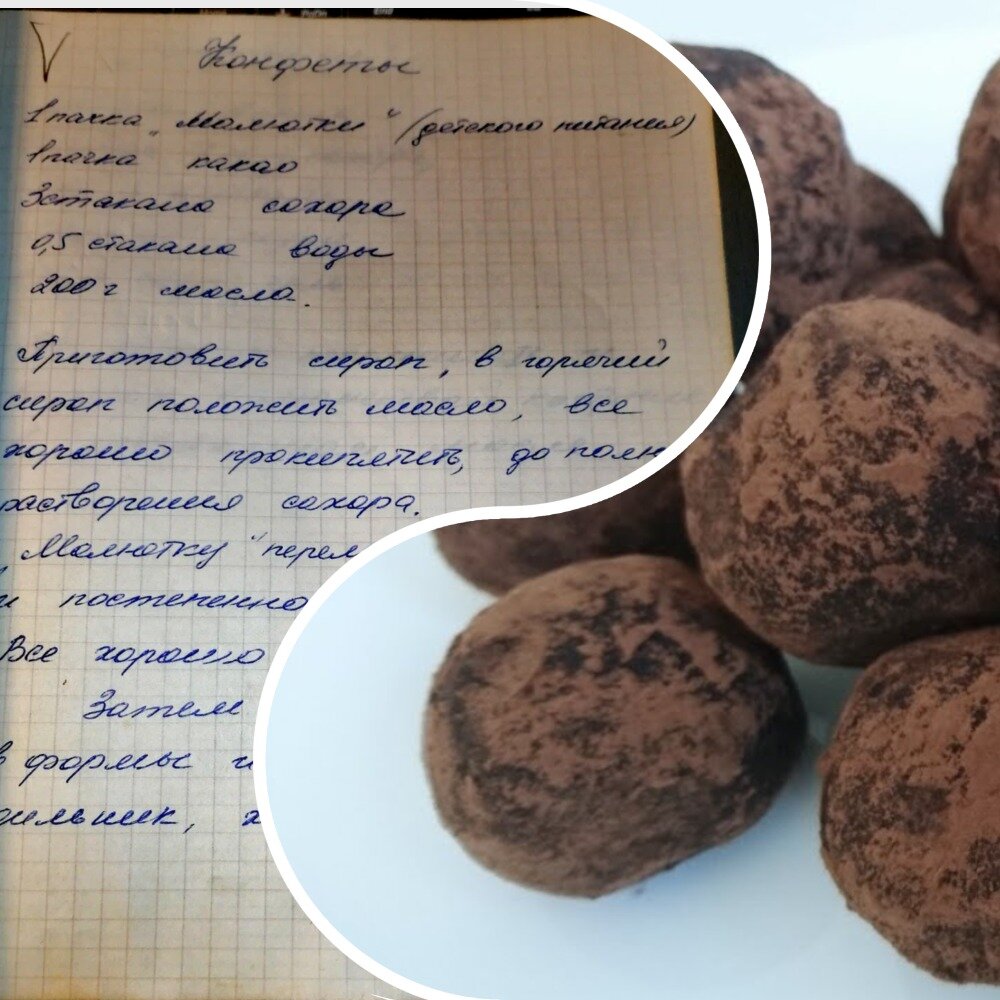 Конфеты
1 пачка "Малютки" (детского питания)
1 пачка какао
3 стакана сахара
0,5 стакана воды
200 г масла.
Приготовить сироп, в горячий
сироп положить масло, все
хорошо прокипятить, до полн
растворения сахара.
"Малютку" перем
и постепенно
Все хорошо
Затем
в формы и
дильник, х